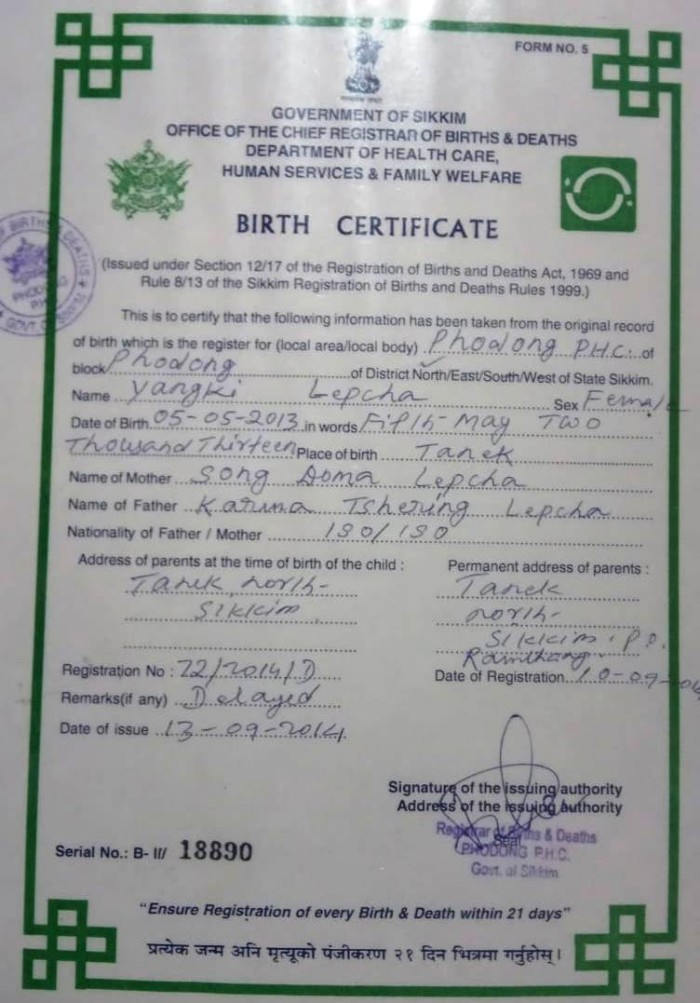 FORM NO. 5
GOVERNMENT OF SIKKIM
OFFICE OF THE CHIEF REGISTRAR OF BIRTHS & DEATHS
DEPARTMENT OF HEALTH CARE,
HUMAN SERVICES & FAMILY WELFARE
BIRTH CERTIFICATE
(Issued under Section 12/17 of the Registration of Births and Deaths Act, 1969 and
Rule 8/13 of the Sikkim Registration of Births and Deaths Rules 1999.)
This is to certify that the following information has been taken from the original record
of birth which is the register for (local area/local body) Phodong P.H.C. of
block Phodong of District North/East/South/West of State Sikkim.
Name Yangki Lepcha Sex Female
Date of Birth 05-05-2013 in words Fifth- May Two
Thousand Thirteen Place of birth Tanek
Name of Mother Song Doma Lepcha
Name of Father Karma Tshering Lepcha
Nationality of Father / Mother
Address of parents at the time of birth of the child : Permanent address of parents :
Tanek north- Tanek
Sikkim north-
Sikkim. P.O.
Registration No : 72/2014/D
Date of Registration 10-09-
Remarks(if any) Delayed
Date of issue 13-09-2014
Signature of the issuing authority
Address of the issuing authority
Seal
Registrar of Births & Deaths
PHODONG P.H.C.
Govt. of Sikkim
Serial No.: B- II/ 18890
"Ensure Registration of every Birth & Death within 21 days"
प्रत्येक जन्म अनि मृत्यूको पंजीकरण २१ दिन भित्रमा गर्नुहोस् ।